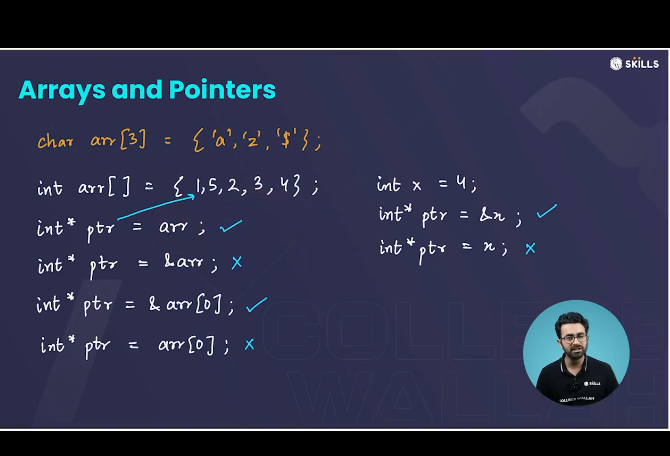 SKILLS
Arrays and Pointers
char arr[3] = {'a', 'z', '$'};
int arr[] = {1,5,2,3,4};
int* ptr = arr; ✓
int* ptr = &arr; x
int* ptr = &arr[0]; ✓
int* ptr = arr[0]; x
int x = 4;
int* ptr = &x; ✓
int* ptr = x; x
COLLEGE
WALLAH
SKILLS
COLLEGE WALLAH